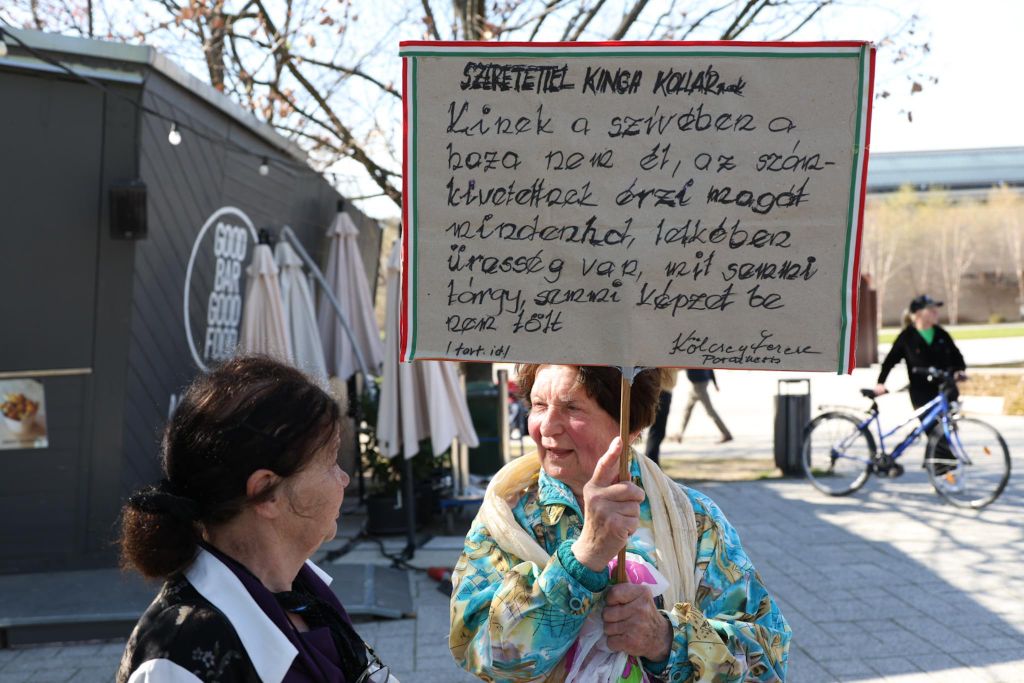 SZERETETTEL KINGA KOLLÁRnak
Kinek a szivében a
haza nem él, az szám-
kivetettnek érzi magát
mindenhol, lelkében
üresség van, mit semmi
tárgy, semmi képzet be
nem tölt
/tört. id/
Kölcsey Ferenc
GOOD
BAR
GOOD
FOOD